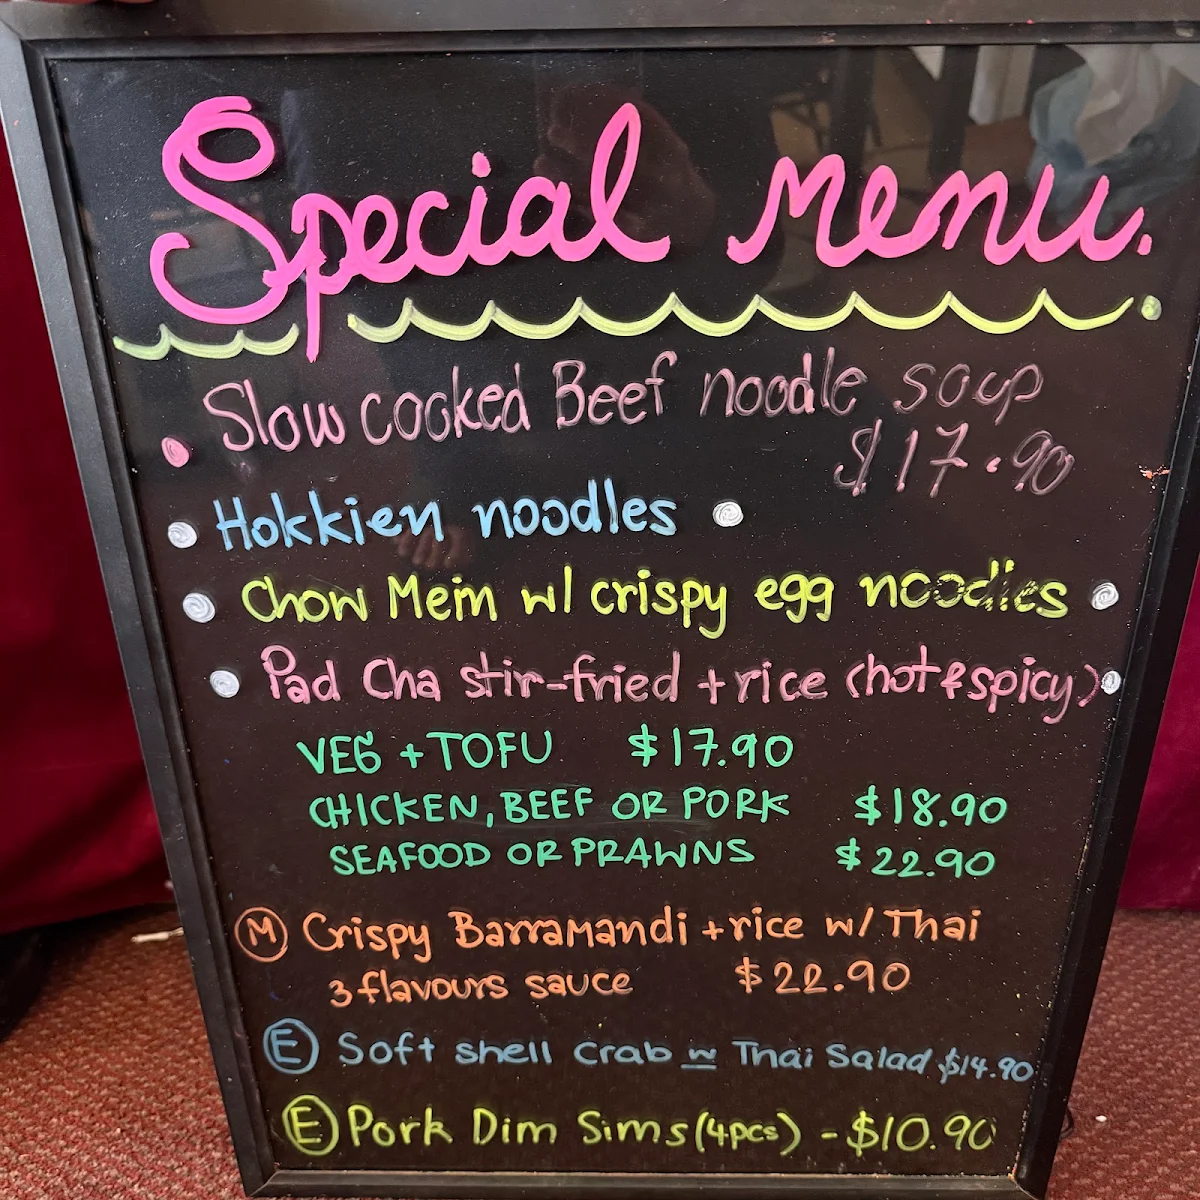 Special Menu.
Slow cooked Beef noodle soup
$17.90
Hokkien noodles
Chow Mein w/ crispy egg noodles
Pad Cha stir-fried + rice (hot & spicy)
VEG + TOFU $17.90
CHICKEN, BEEF OR PORK $18.90
SEAFOOD OR PRAWNS $22.90
M Crispy Barramandi + rice w/ Thai
3 flavours sauce $22.90
E Soft shell Crab w Thai Salad $14.90
E Pork Dim Sims (4pcs) - $10.90